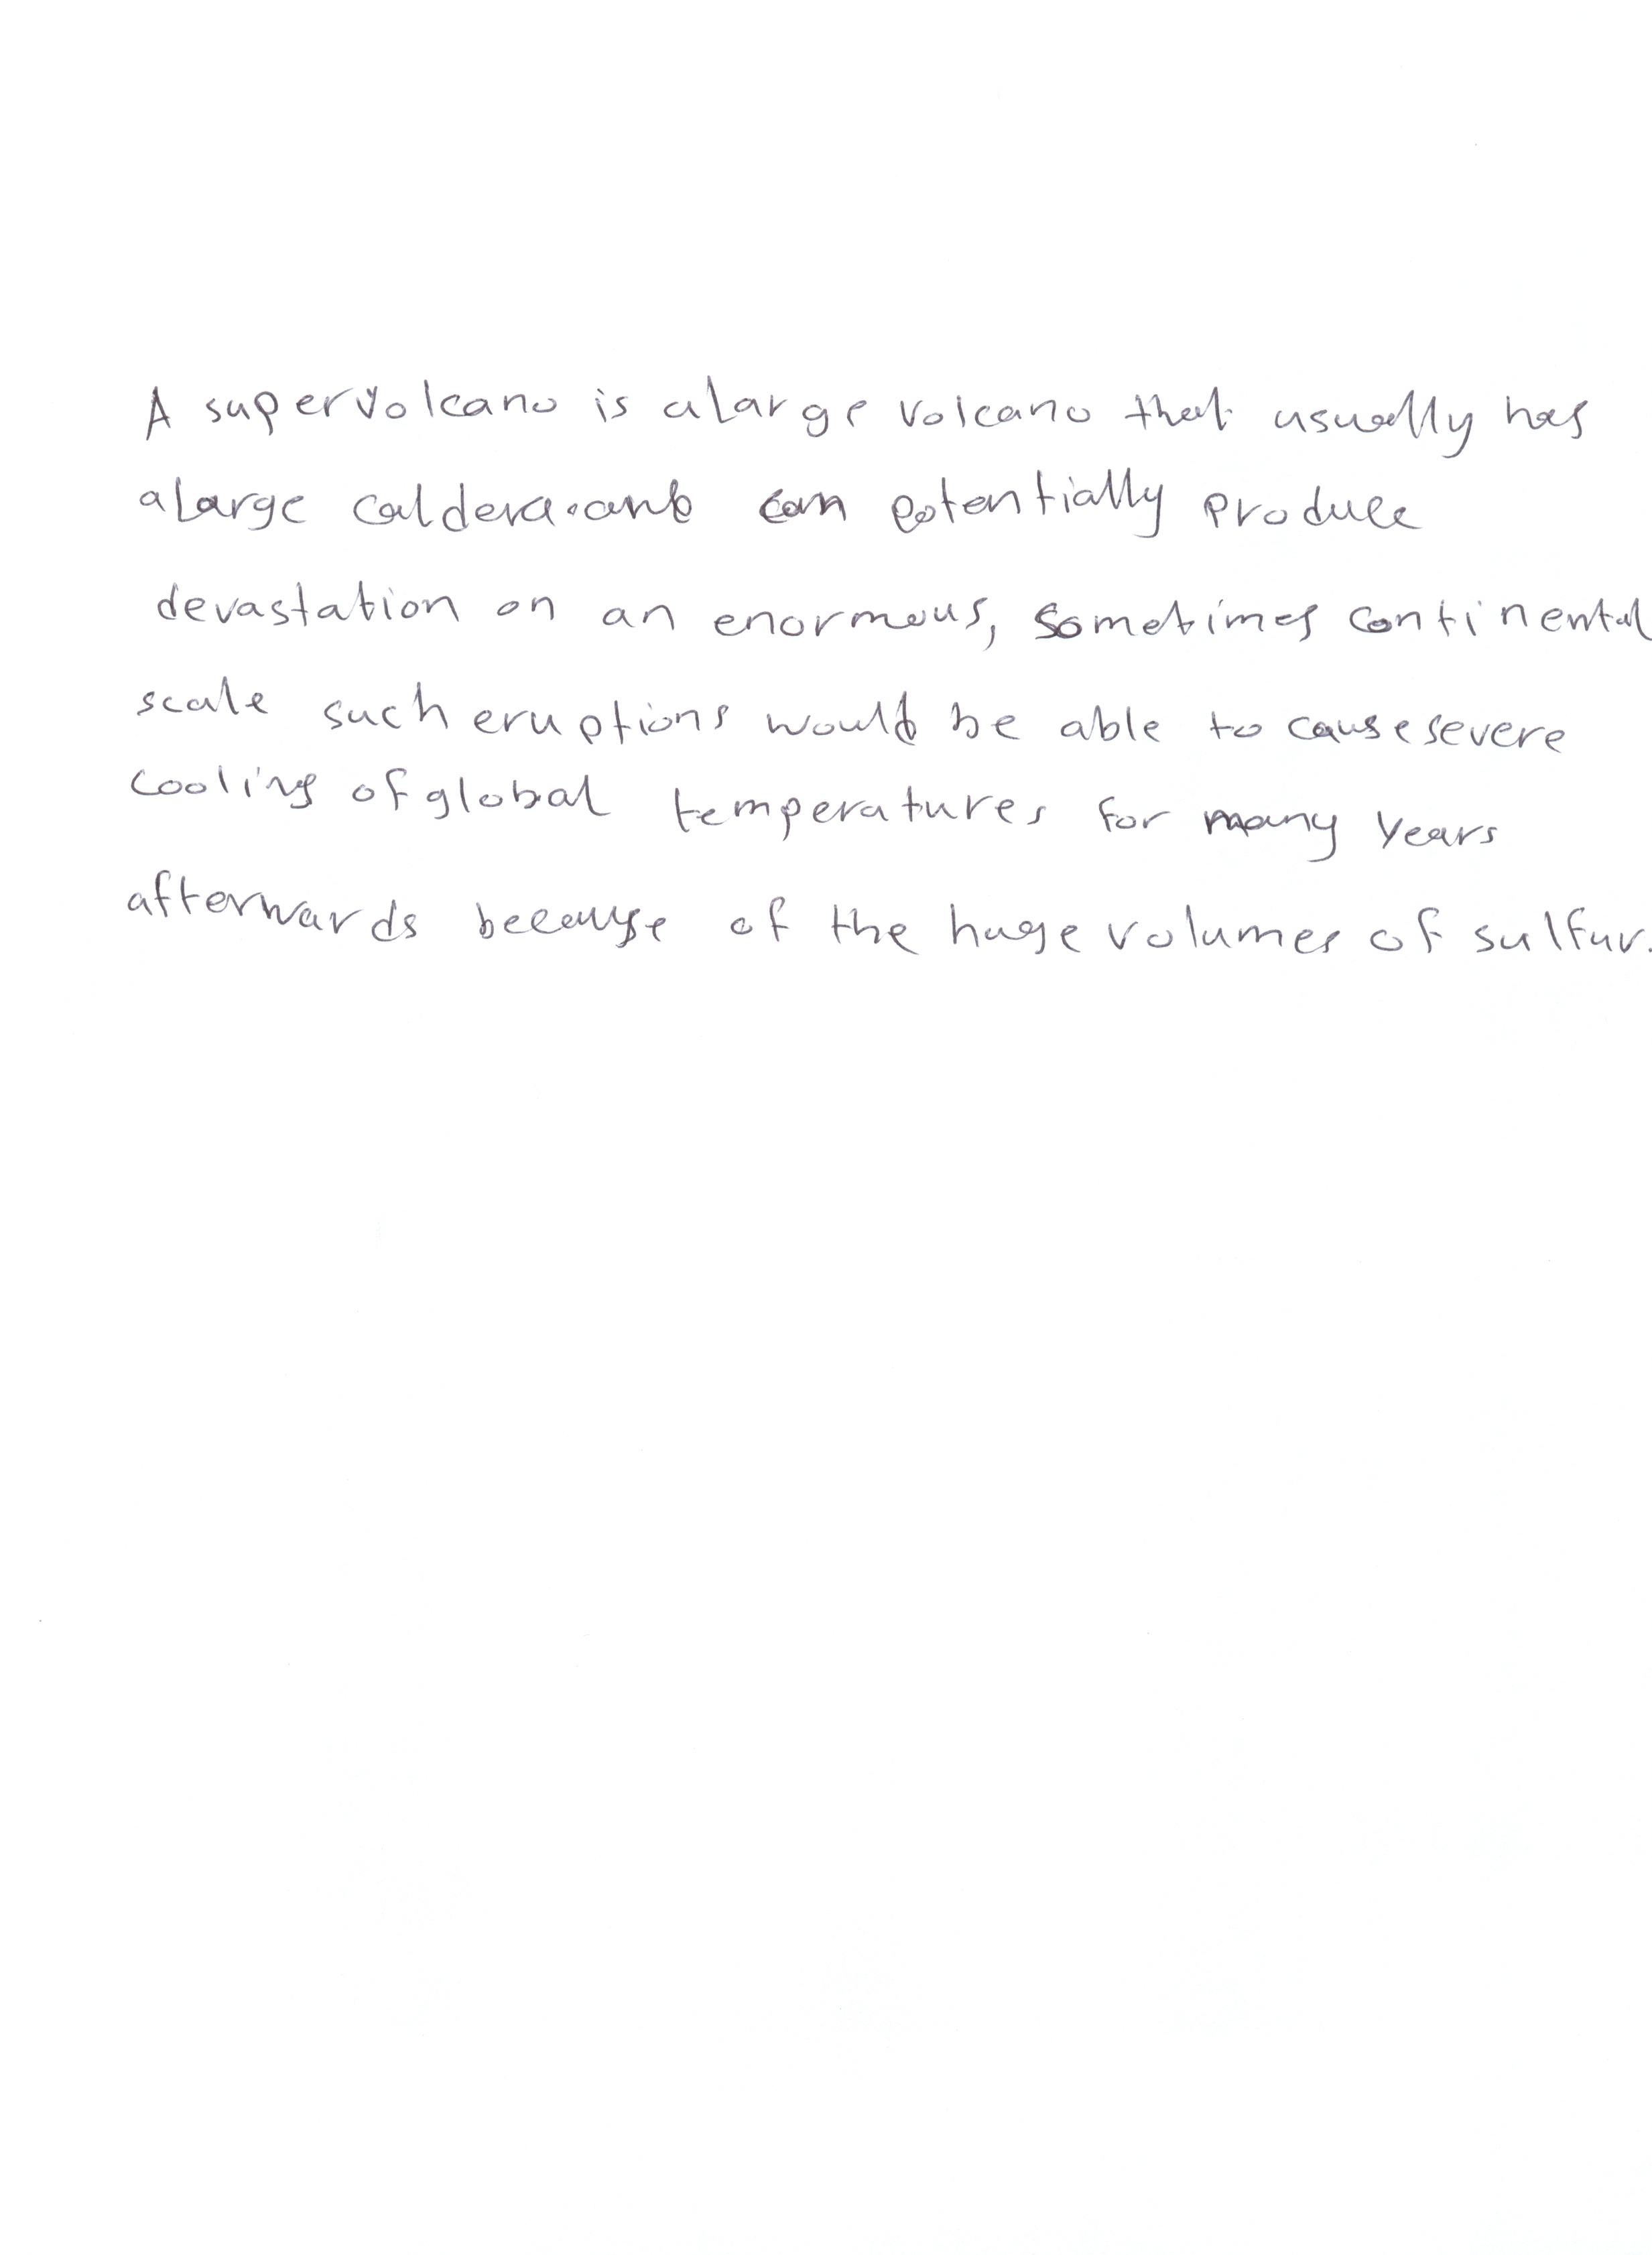 A supervolcano is a large volcano that usually has
a large caldera. and can potentially produce
devastation on an enormous, sometimes continental
scale such eruptions would be able to cause severe
cooling of global temperatures for many years
afterwards because of the huge volumes of sulfur.